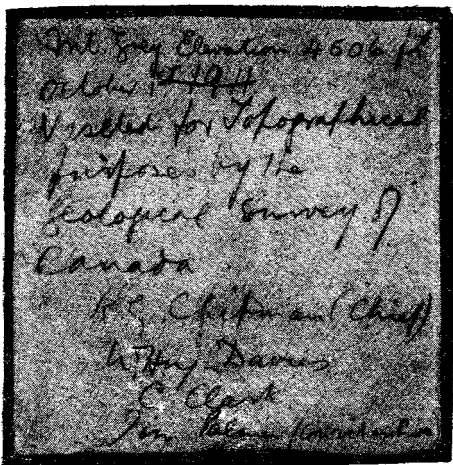 Mt Grey Elevation 4506 ft
October 1st 1911
Visited for Topographical
purposes by the
Geological Survey of
Canada
Chipman (Chief)
Davies
C Clark